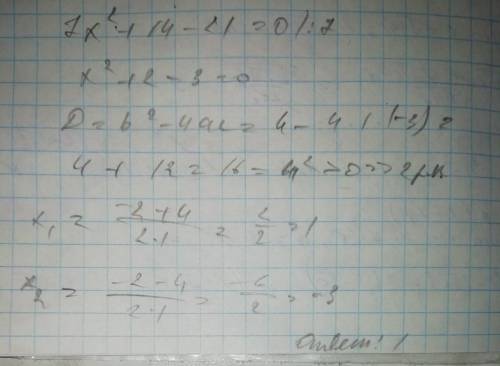 7x² + 14 - 21 = 0 | : 7
x² + 2 - 3 = 0
D = b² - 4ac = 4 - 4 · 1 · (-3) =
4 + 12 = 16 = 4² > 0 => 2 р.к
x₁ = \frac{-2+4}{2·1} = \frac{2}{2} = 1
x₂ = \frac{-2-4}{2·1} = \frac{-6}{2} = -3
Ответ: 1